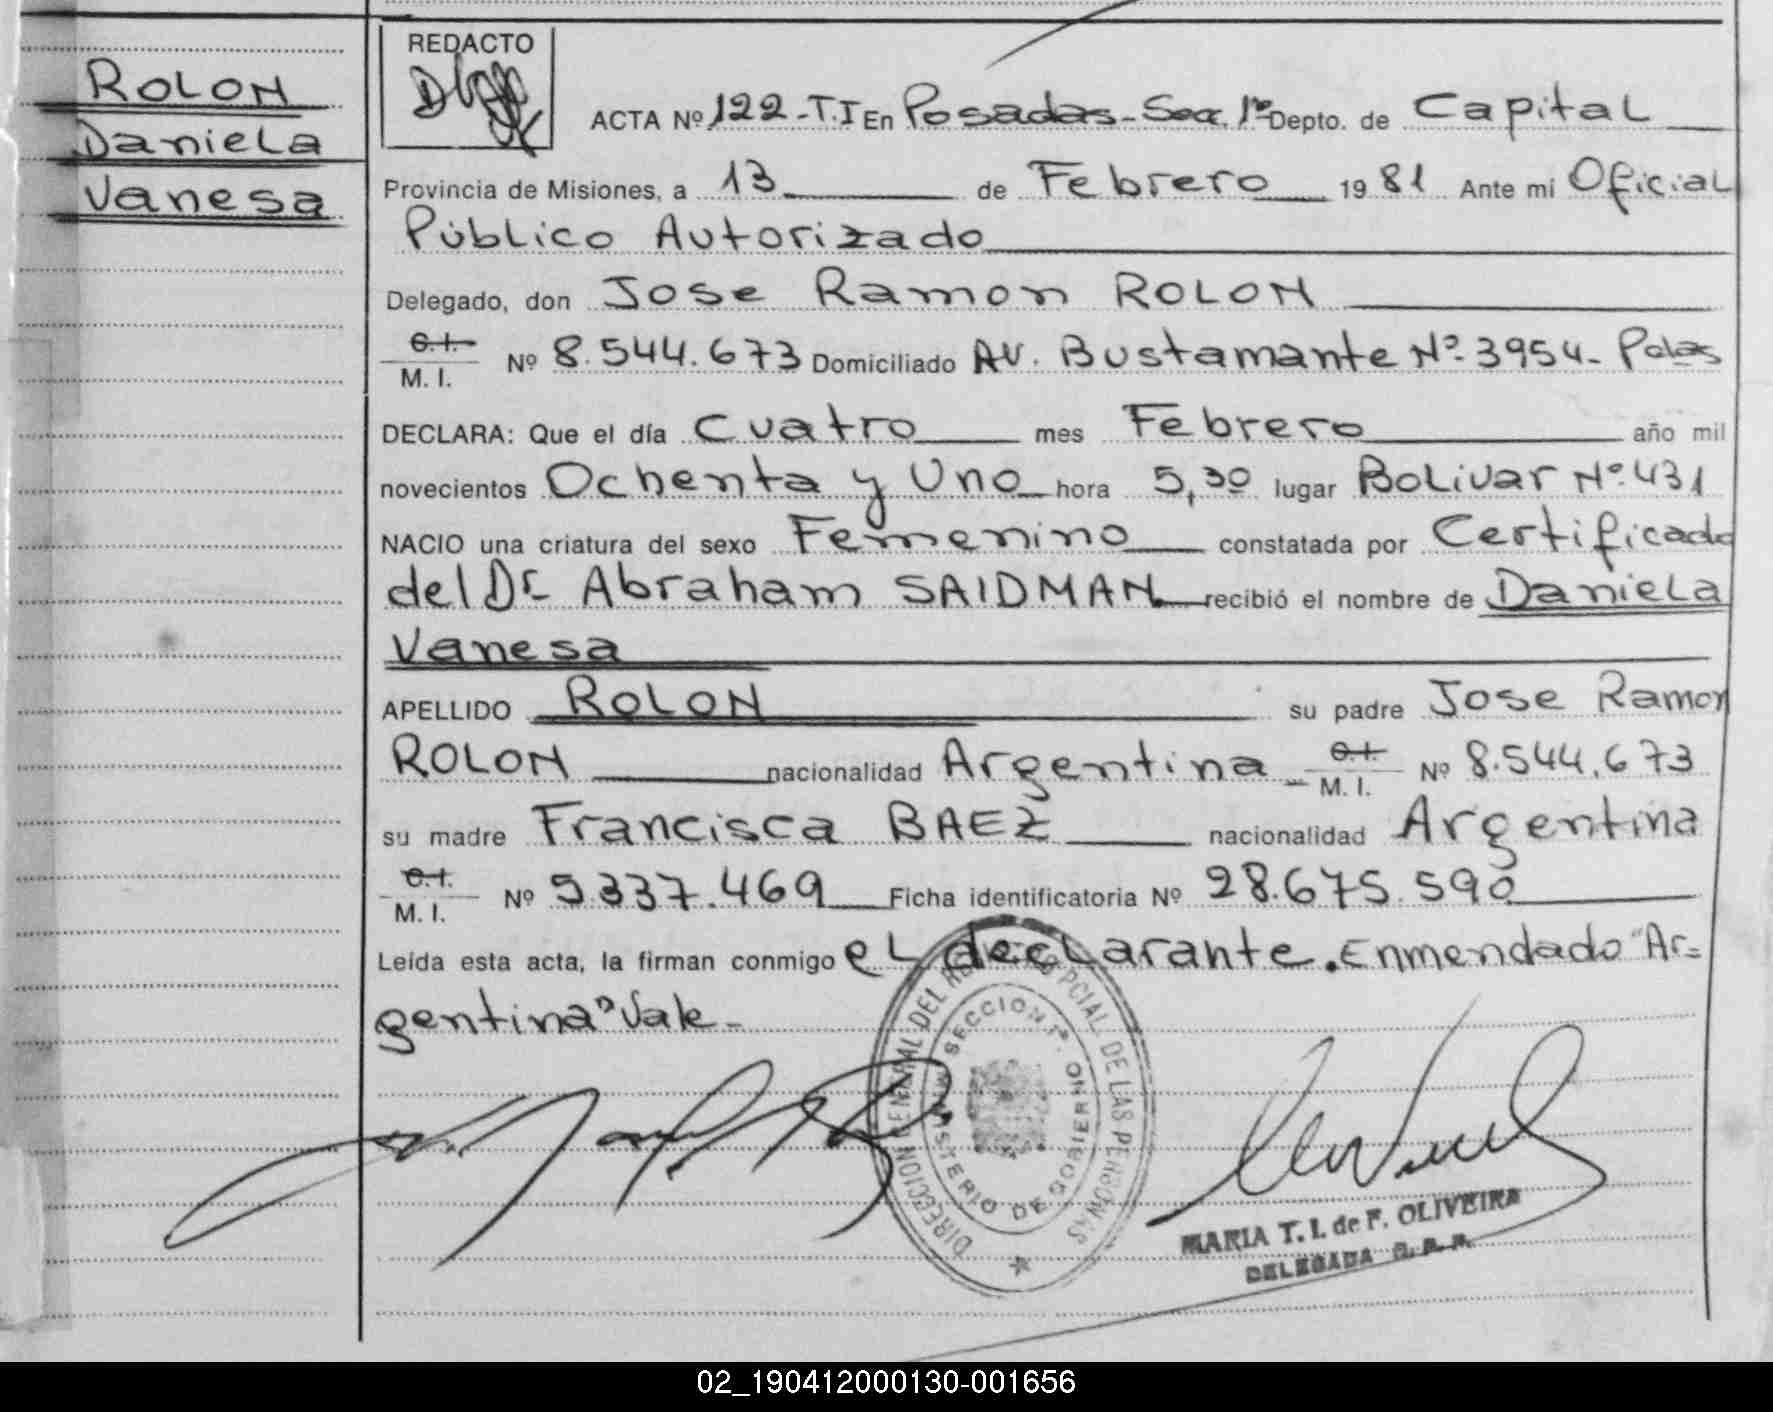 ROLON
Daniela
Vanesa
REDACTO
ACTA Nº 122-T.I En Posadas-Sec. 1ª Depto. de Capital
Provincia de Misiones, a 13 de Febrero 19 81 Ante mi Oficial
Público Autorizado
Delegado, don Jose Ramon ROLON
C.I.
M. I. Nº 8.544.673 Domiciliado AV. Bustamante Nº 3954- Pdas
DECLARA: Que el día Cuatro mes Febrero año mil
novecientos Ochenta y Uno hora 5,30 lugar Bolivar Nº 431
NACIO una criatura del sexo Femenino constatada por Certificado
del Dr. Abraham SAIDMAN recibió el nombre de Daniela
Vanesa
APELLIDO ROLON su padre Jose Ramon
ROLON nacionalidad Argentina C.I. M. I. Nº 8.544.673
su madre Francisca BAEZ nacionalidad Argentina
C.I.
M. I. Nº 5.337.469 Ficha identificatoria Nº 28.675.590
Leída esta acta, la firman conmigo el declarante. Enmendado "Ar=
gentina" Vale-
DIRECCION GENERAL DEL REGISTRO PCIAL. DE LAS PERSONAS
SECCION 1ª.
MINISTERIO DE GOBIERNO
MARIA T. I. de F. OLIVEIRA
DELEGADA R. P. P.
02_190412000130-001656